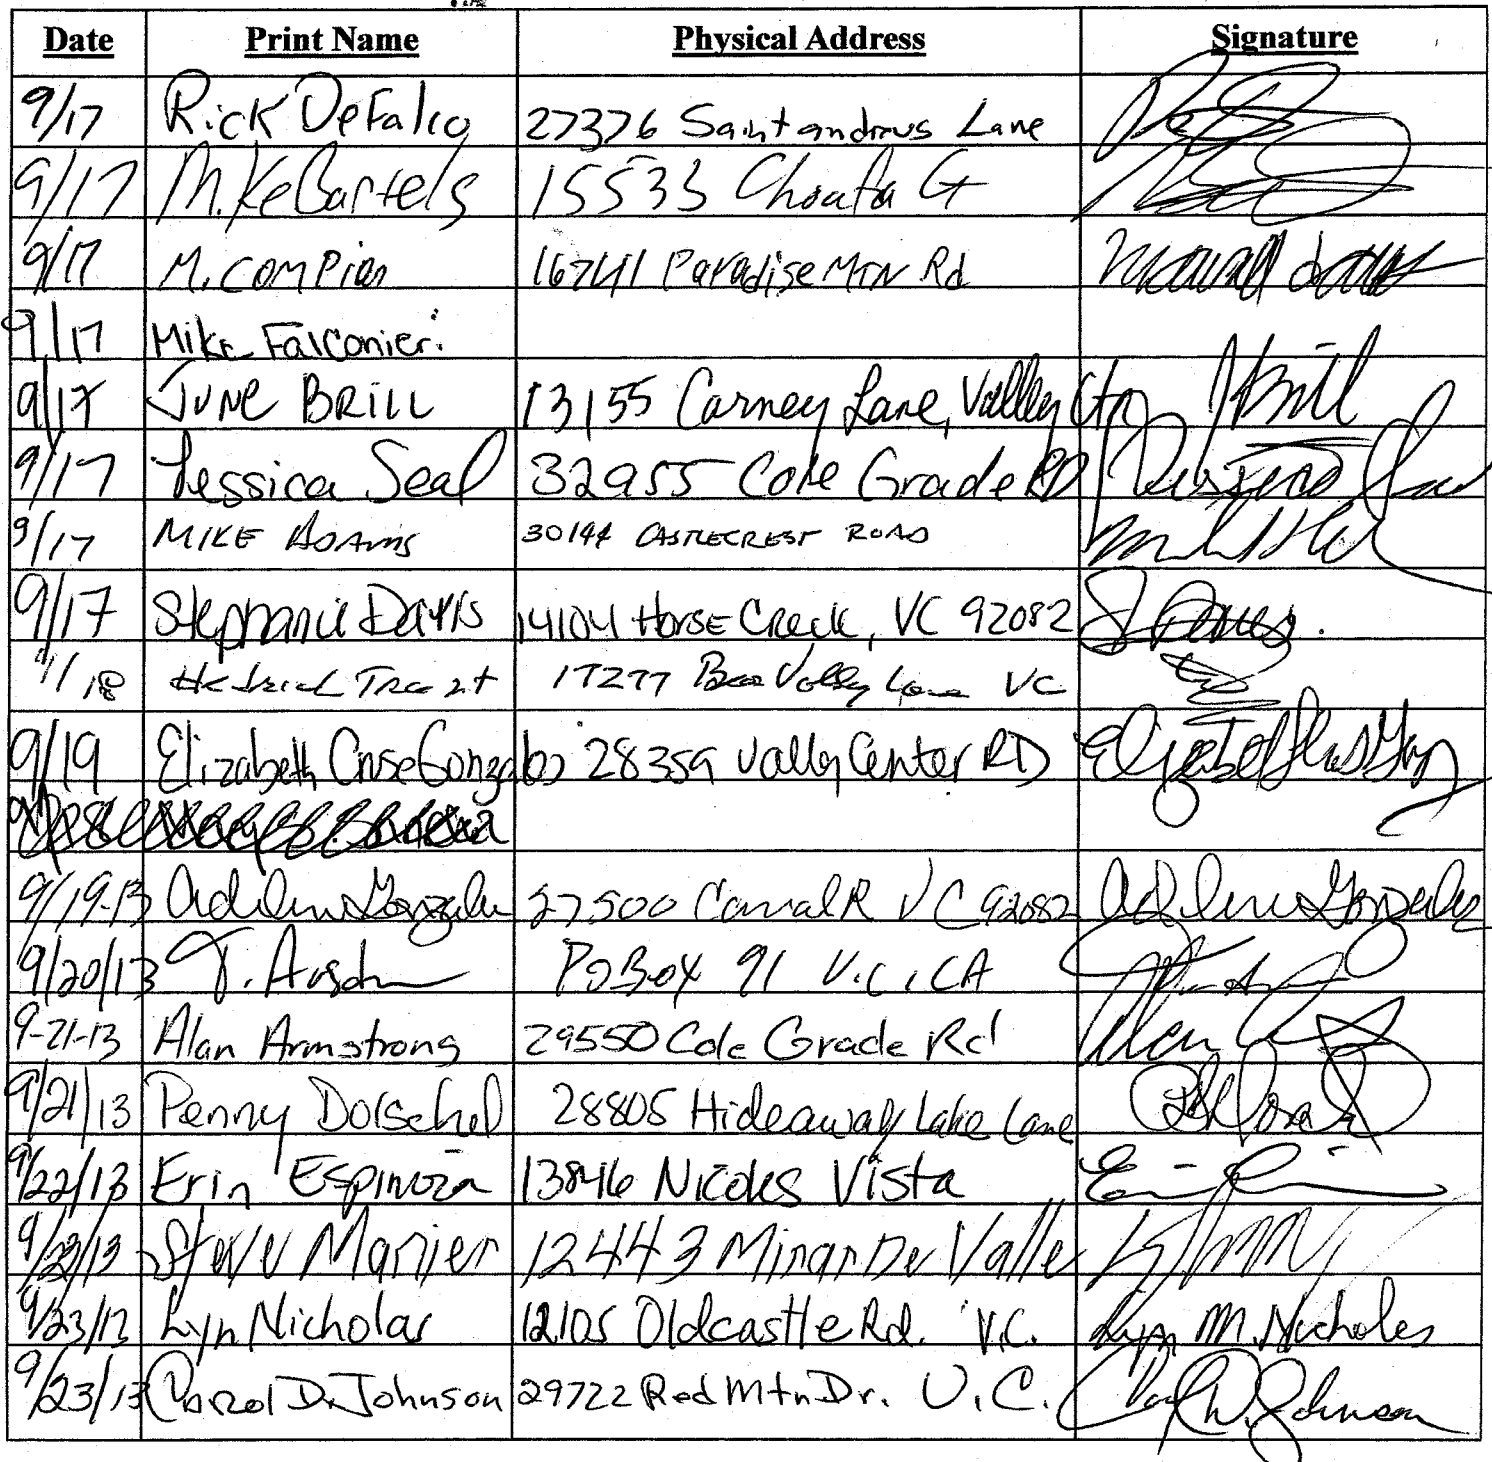 Date Print Name Physical Address Signature
9/17 Rick DeFalco 27376 Saint andrews Lane
9/17 Mike Bartels 15533
9/17 M. COMPian 16741 Paradise MTN Rd
9/17 Mike Falconieri
9/17 JUNE BRILL 13155 Carney Lane, Valley Ctr JBrill
9/17 Jessica Seal 32955 Cole Grade RD
9/17 MIKE ADAMS 30144 CASTLECREST ROAD
9/17 Stephanie Davis 14104 Horse Creek, VC 92082 S Davis
9/18 17277 Bear Valley Lane VC
9/19 Elizabeth 28359 Valley Center RD
9/19-13 27500 VC 92082
9/20/13 T. PO Box 91 V.C., CA
9-21-13 Alan Armstrong 29550 Cole Grade Rd
9/21/13 Penny Dorschel 28805 Hideaway Lake Lane
9/22/13 Erin Espinoza 13846 Nicoles Vista
9/23/13 Steve Manier 12443 Mirar De Valle
9/23/13 Lyn Nicholas 12105 Oldcastle Rd. V.C. Lyn M. Nicholas
9/23/13 Carol D. Johnson 29722 Red Mtn Dr. V.C. Johnson